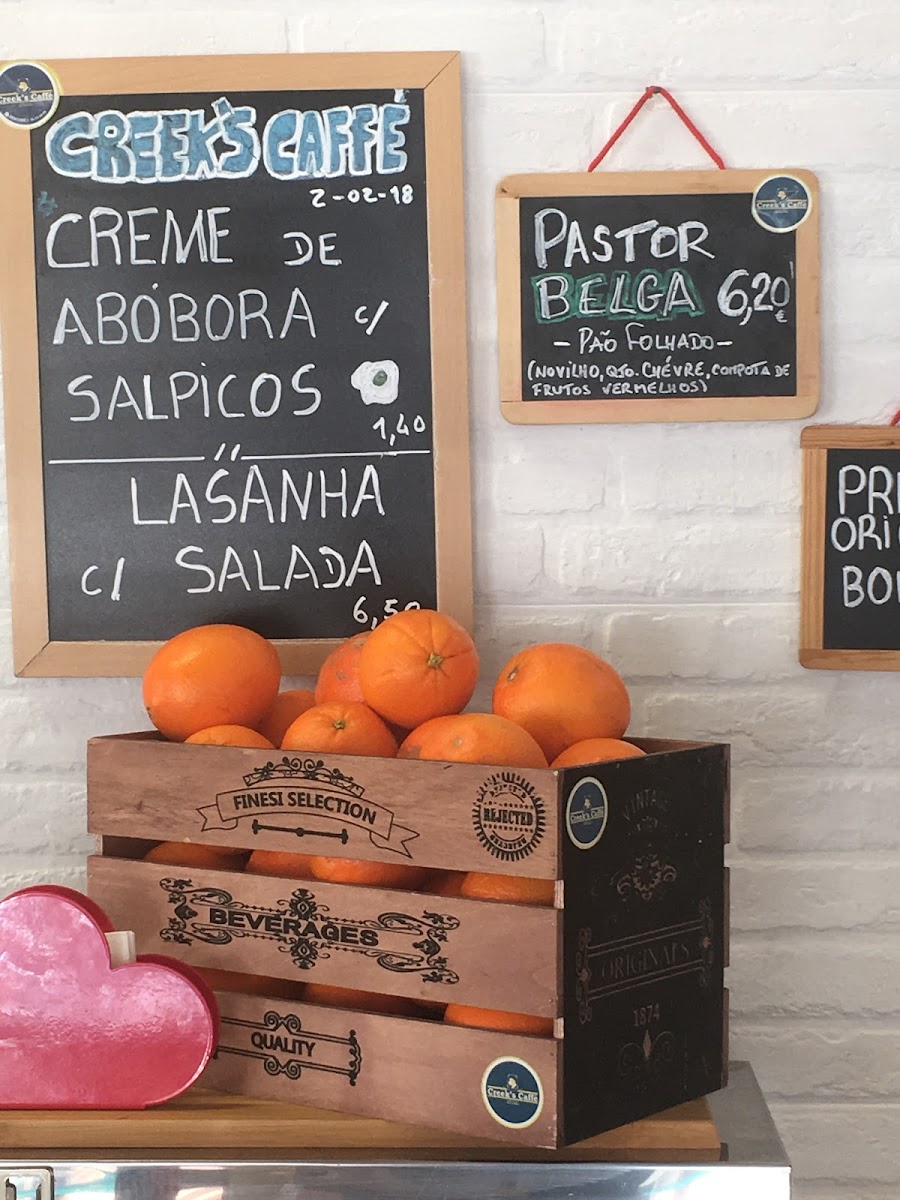 Creek's Caffé
CREEK'S CAFFÉ
2-02-18
CREME DE
ABÓBORA c/
SALPICOS
1,40
LASANHA
c/ SALADA
6,50
Creek's Caffé
PASTOR
BELGA 6,20
€
- PÃO FOLHADO -
(NOVILHO, QJO. CHÉVRE, COMPOTA DE
FRUTOS VERMELHOS)
PRE
ORIG
BOL
FINEST SELECTION
REJECTED
Creek's Caffé
VINTAGE
BEVERAGES
ORIGINALS
1874
QUALITY
Creek's Caffé